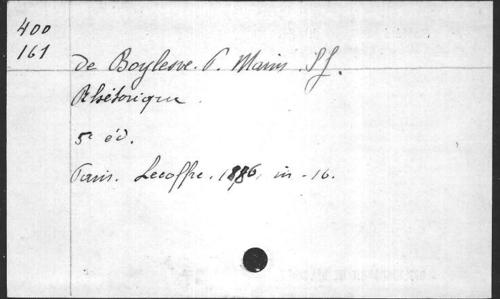 400
161
de Boylesve. P. Marin. S J.
Rhétorique.
5e éd.
Paris. Lecoffre. 1886, in-16.